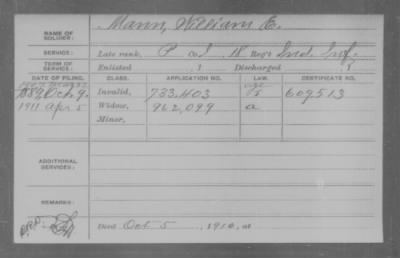 NAME OF SOLDIER: Mann, William E.
SERVICE: Late rank, P Co. I, 18 Reg't Ind. Inf.
TERM OF SERVICE: Enlisted , 1 Discharged , 1
DATE OF FILING. CLASS. APPLICATION NO. LAW. CERTIFICATE NO.
1889 Oct. 9. Invalid, 733,403 609513
1911 Apr 5 Widow, 962,099 a
Minor,
ADDITIONAL SERVICES:
REMARKS:
Died Oct 5, 1910, at